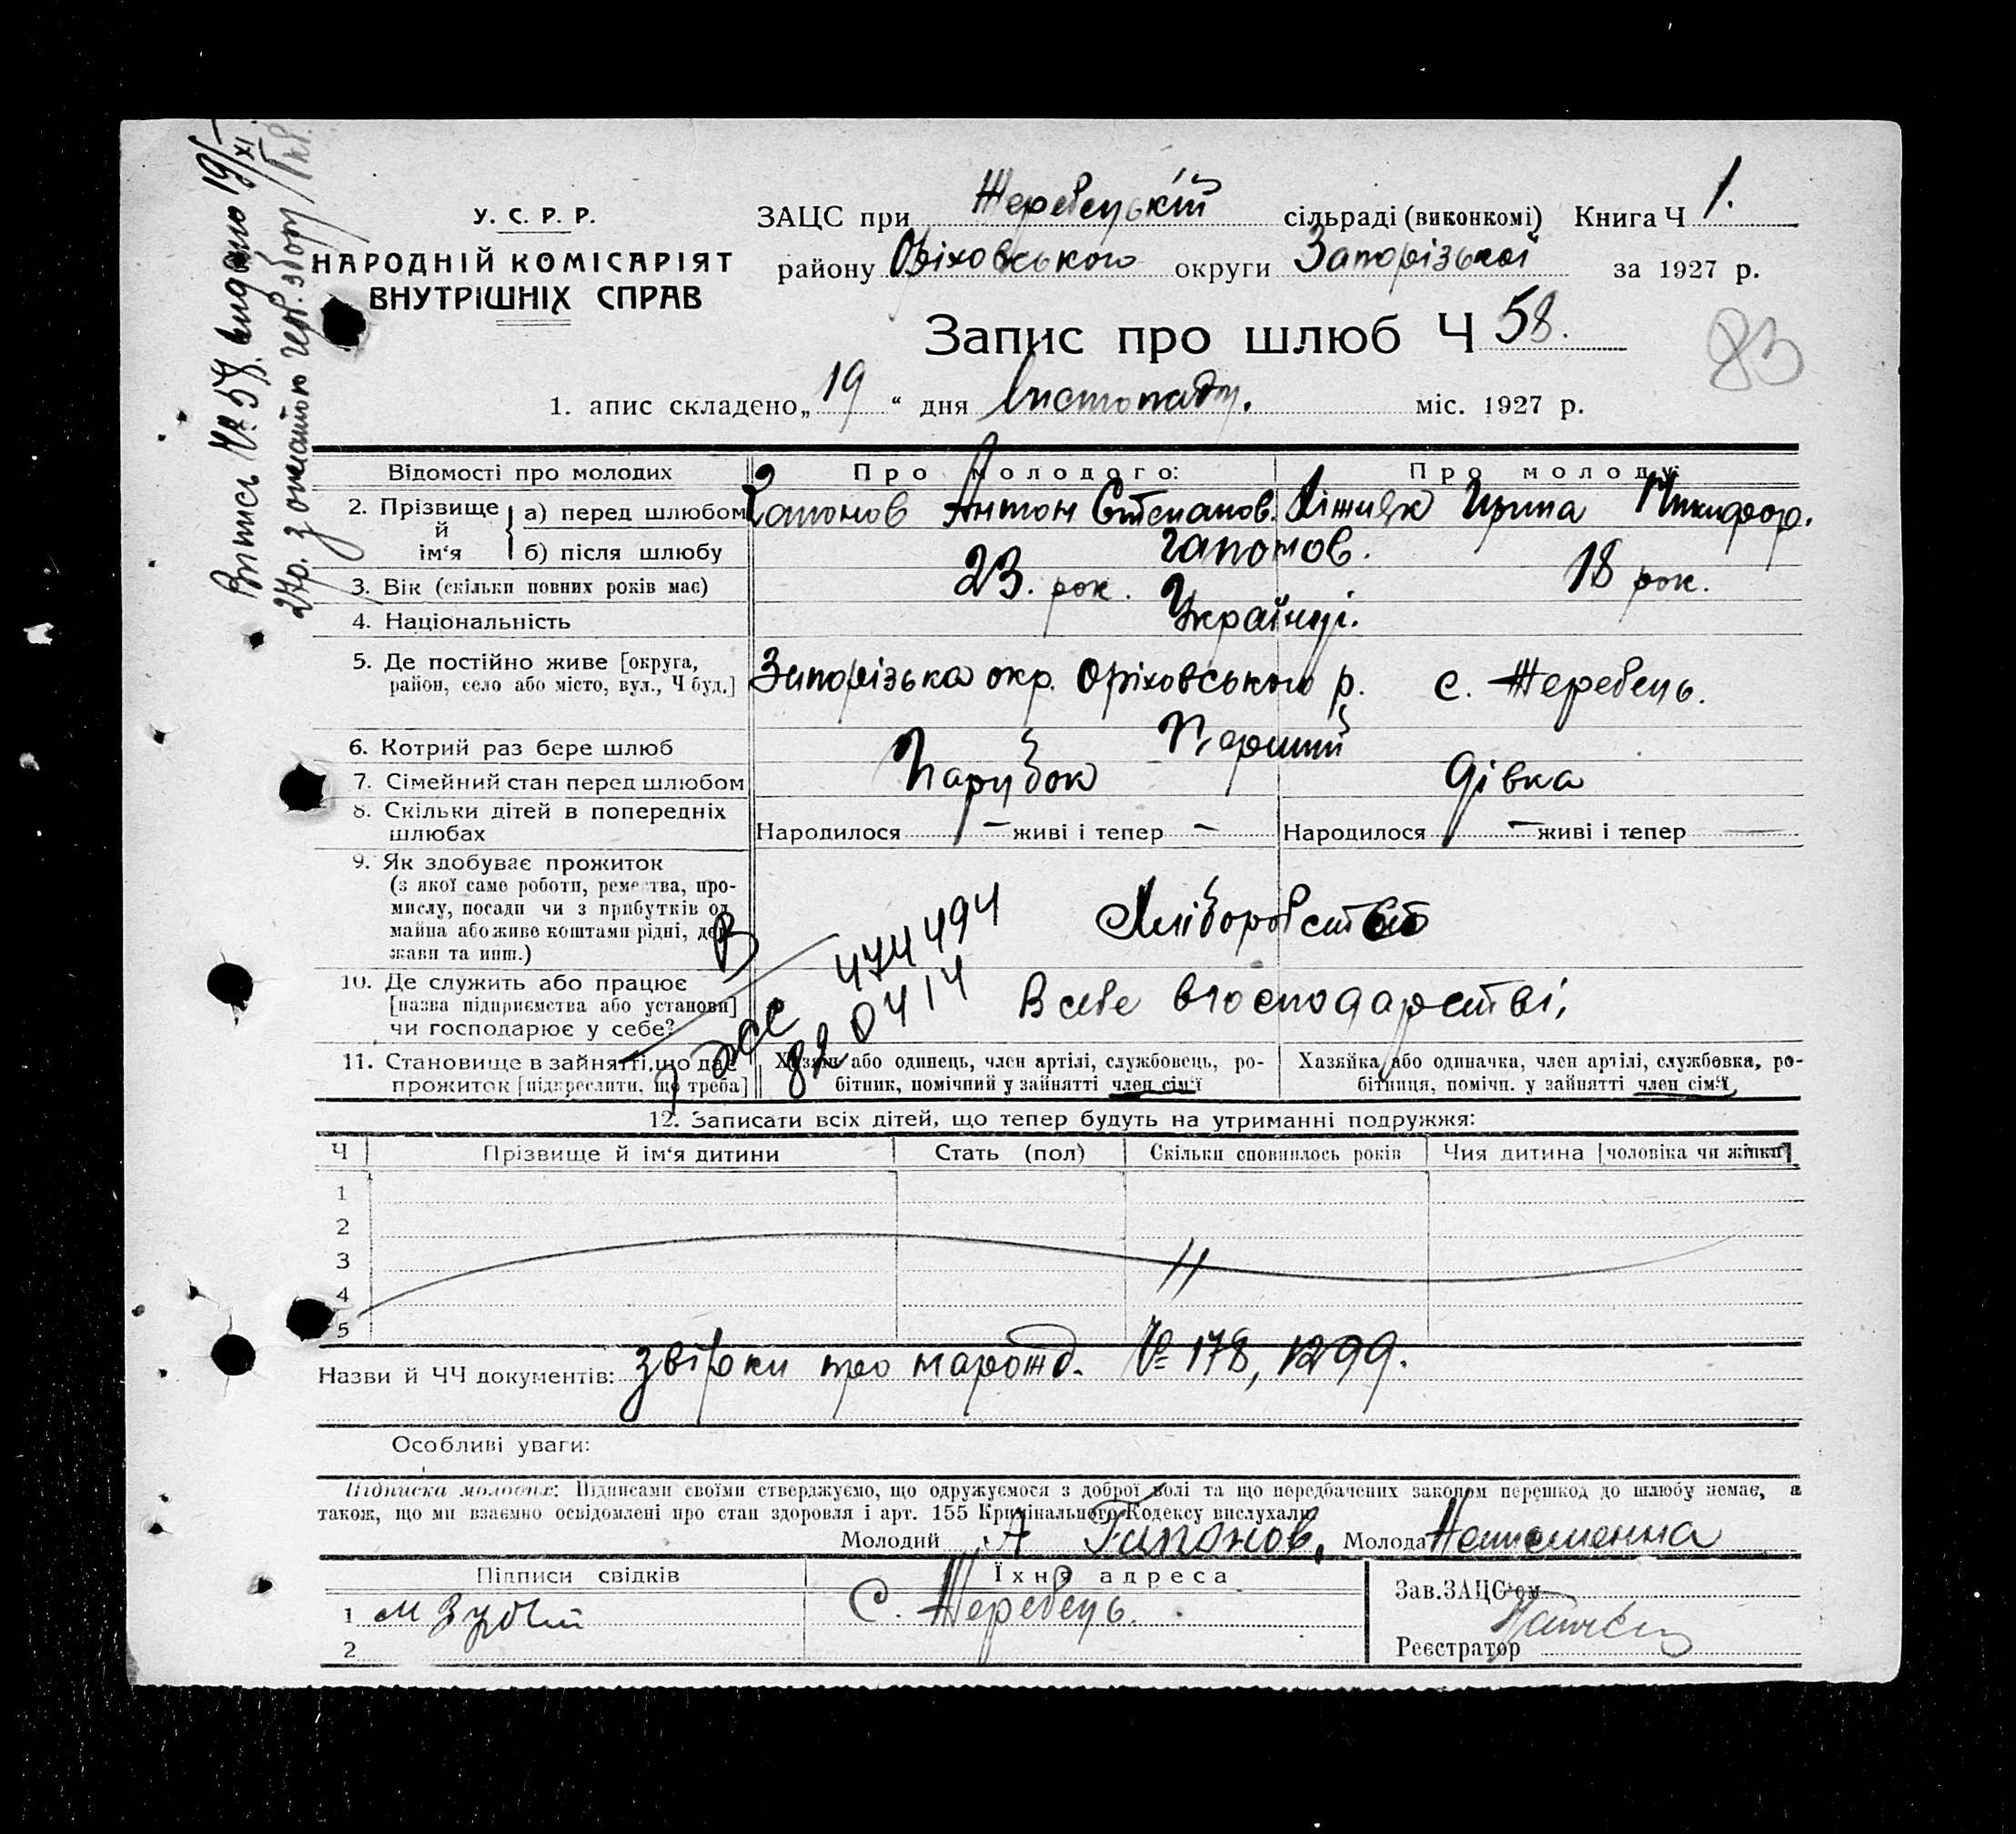 У. С. Р. Р.
НАРОДНІЙ КОМІСАРІЯТ
ВНУТРІШНІХ СПРАВ
ЗАЦС при Жеребецькій сільраді (виконкомі) Книга Ч 1.
району Оріховського округи Запорізької за 1927 р.
Запис про шлюб Ч 58.
83
1. апис складено „19“ дня Листопаду. міс. 1927 р.
Витись № 57 видано 19/XI
27р. з оплатою герб. збору
Відомості про молодих
Про молодого:
Про молоду:
2. Прізвище й ім‘я
а) перед шлюбом
Гапонов Антон Степанов.
Ірина Никифор.
б) після шлюбу
Гапонов.
3. Вік (скільки повних років має)
23. рок.
18 рок.
4. Національність
Українці.
5. Де постійно живе [округа,
район, село або місто, вул., Ч буд.]
Запорізька окр. Оріховського р. с. Жеребець.
6. Котрий раз бере шлюб
Перший
7. Сімейний стан перед шлюбом
Парубок
Дівка
8. Скільки дітей в попередніх
шлюбах
Народилося — живі і тепер —
Народилося — живі і тепер —
9. Як здобуває прожиток
(з якої саме роботи, реме тва, про-
мислу, посади чи з прибутків од
майна або живе коштами рідні, дер-
жави та инш.)
Хліборобство
474494
820414
10. Де служить або працює
[назва підприємства або установи]
чи господарює у себе?
В себе в господарстві,
11. Становище в зайнятті, що дає
прожиток [підкреслити, що треба]
Хазяїн або одинець, член артілі, службовець, ро-
бітник, помічний у зайнятті член сім‘ї
Хазяйка або одиначка, член артілі, службовка, ро-
бітниця, помічн. у зайнятті член сім‘ї
12. Записати всіх дітей, що тепер будуть на утриманні подружжя:
Ч Прізвище й ім‘я дитини Стать (пол) Скільки сповнилось років Чия дитина [чоловіка чи жінки]
1
2
3
4
5
Назви й ЧЧ документів: звірки про нарожд. № 178, 1299.
Особливі уваги:
Підписка молодих: Підписами своїми стверджуємо, що одружуємося з доброї волі та що передбачених законом перешкод до шлюбу немає, а
також, що ми взаємно освідомлені про стан здоровля і арт. 155 Кримінального Кодексу вислухали
Молодий А Гапонов, Молода Неписменна
Підписи свідків
Їхня адреса
Зав.ЗАЦС‘ом
1 М
С. Жеребець.
2
Реєстратор